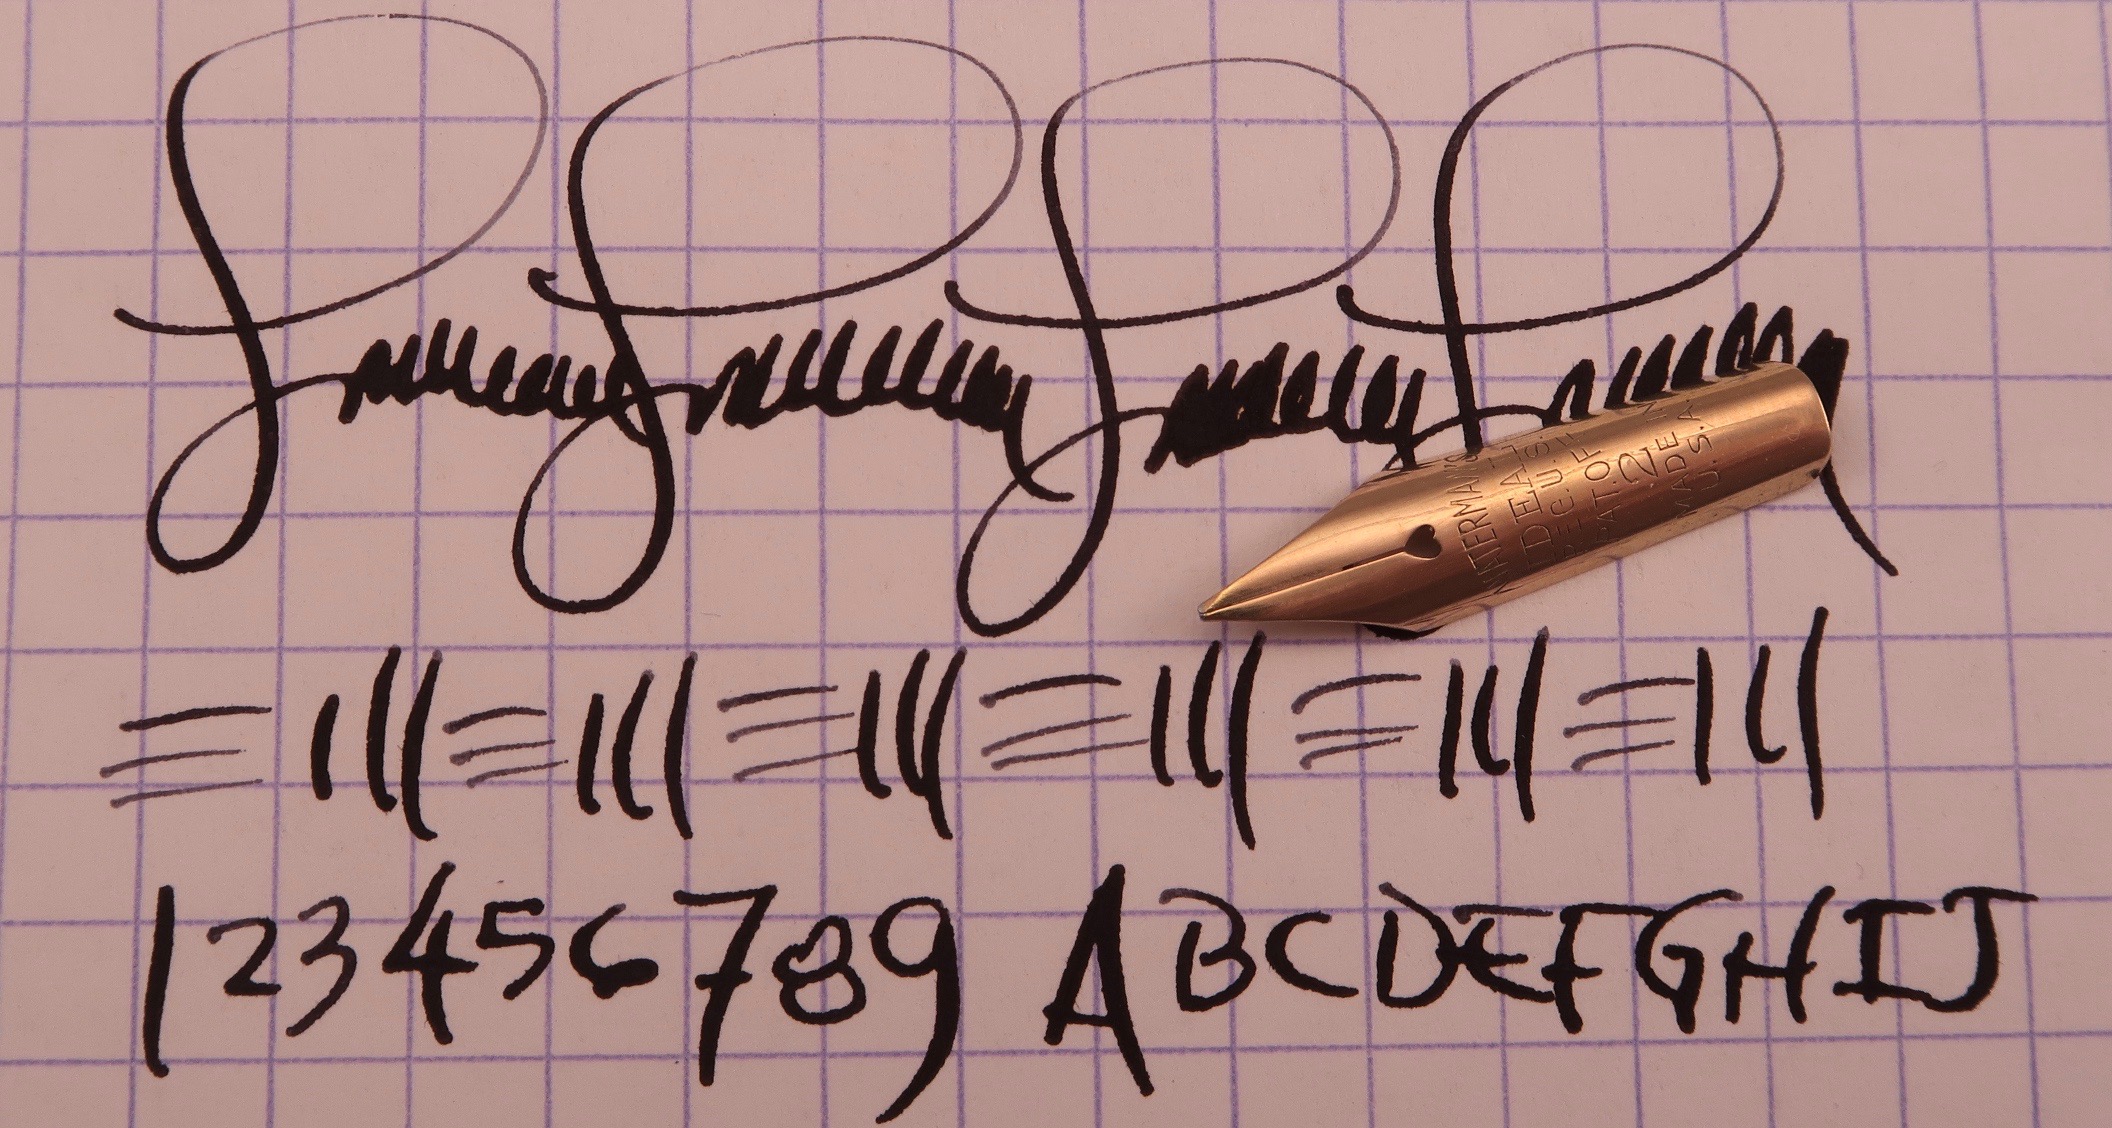 WATERMAN'S
IDEAL
REG.U.S.
PAT.OFF.
2
MADE IN
U.S.A.
123456789 ABCDEFGHIJ